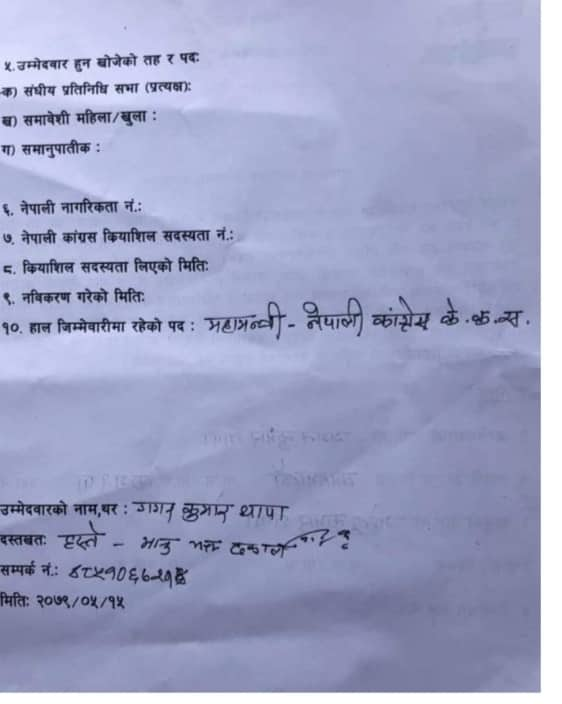 ५.उम्मेदवार हुन खोजेको तह र पदः
क) संघीय प्रतिनिधि सभा (प्रत्यक्ष):
ख) समावेशी महिला/खुला :
ग) समानुपातीक :
६. नेपाली नागरिकता नं.:
७. नेपाली कांग्रस कियाशिल सदस्यता नं.:
८. कियाशिल सदस्यता लिएको मितिः
९. नविकरण गरेको मितिः
१०. हाल जिम्मेवारीमा रहेको पद : महामन्त्री - नेपाली कांग्रेस के.का.स.
उम्मेदवारको नाम,थर : गगन कुमार थापा
दस्तखतः हस्ते - भानु भक्त ढकाल
सम्पर्क नं.:
मितिः २०७९/०५/१५